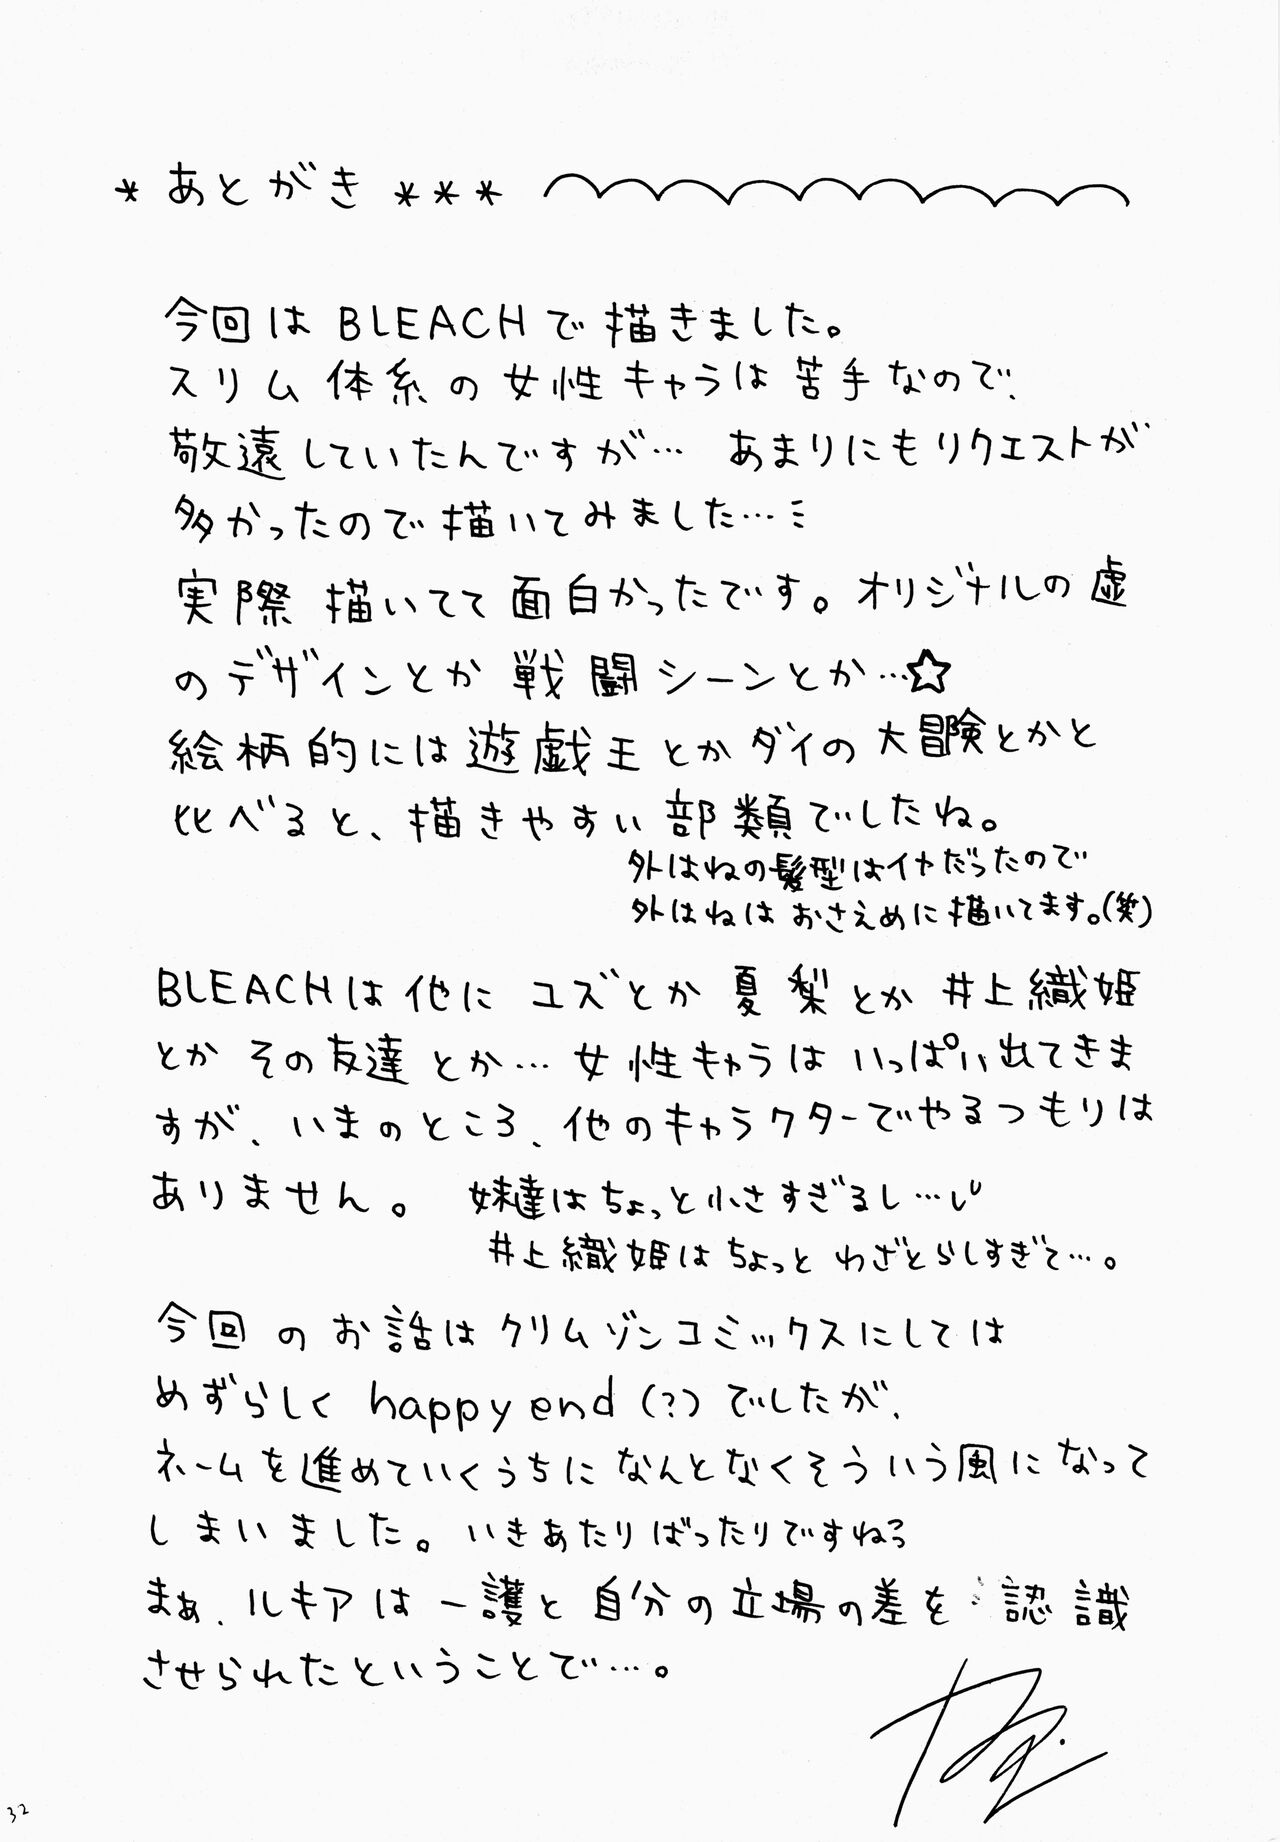 * あとがき ***
今回は BLEACHで描きました。
スリム体系の女性キャラは苦手なので、
敬遠していたんですが… あまりにもリクエストが
多かったので描いてみました…ミ
実際描いてて面白かったです。オリジナルの虚
のデザインとか戦闘シーンとか…☆
絵柄的には遊戯王とかダイの大冒険とかと
比べると、描きやすい部類でしたね。
外はねの髪型はイヤだったので
外はねはおさえめに描いてます。(笑)
BLEACHは他に ユズとか 夏梨とか 井上織姫
とか その友達とか… 女性キャラは いっぱい出てきま
すが、いまのところ、他のキャラクターでやるつもりは
ありません。 妹達はちょっと小さすぎるし…
井上織姫はちょっと わざとらしすぎて…。
今回のお話はクリムゾンコミックスにしては
めずらしく happy end (?) でしたが、
ネームを進めていくうちになんとなくそういう風になって
しまいました。いきあたりばったりですねぇ
まぁ、ルキアは一護と自分の立場の差を 認識
させられたということで…。
32